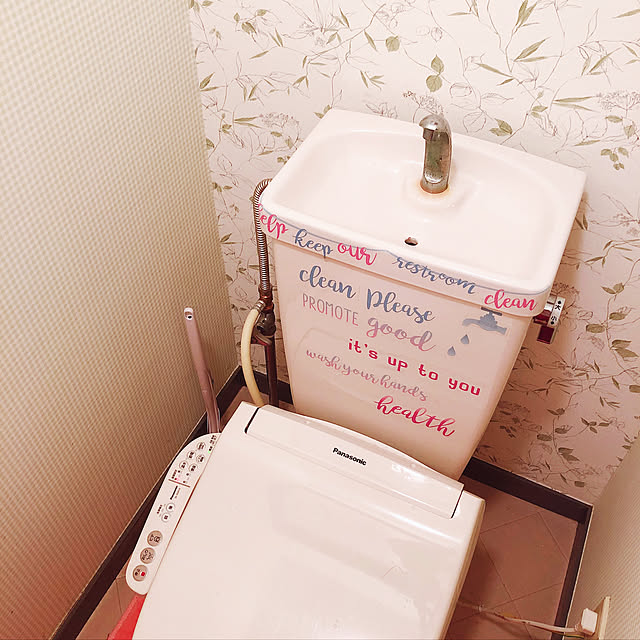 elp keep our restroom clean
clean Please
PROMOTE good
it's up to you
wash your hands
health
Panasonic
大
小